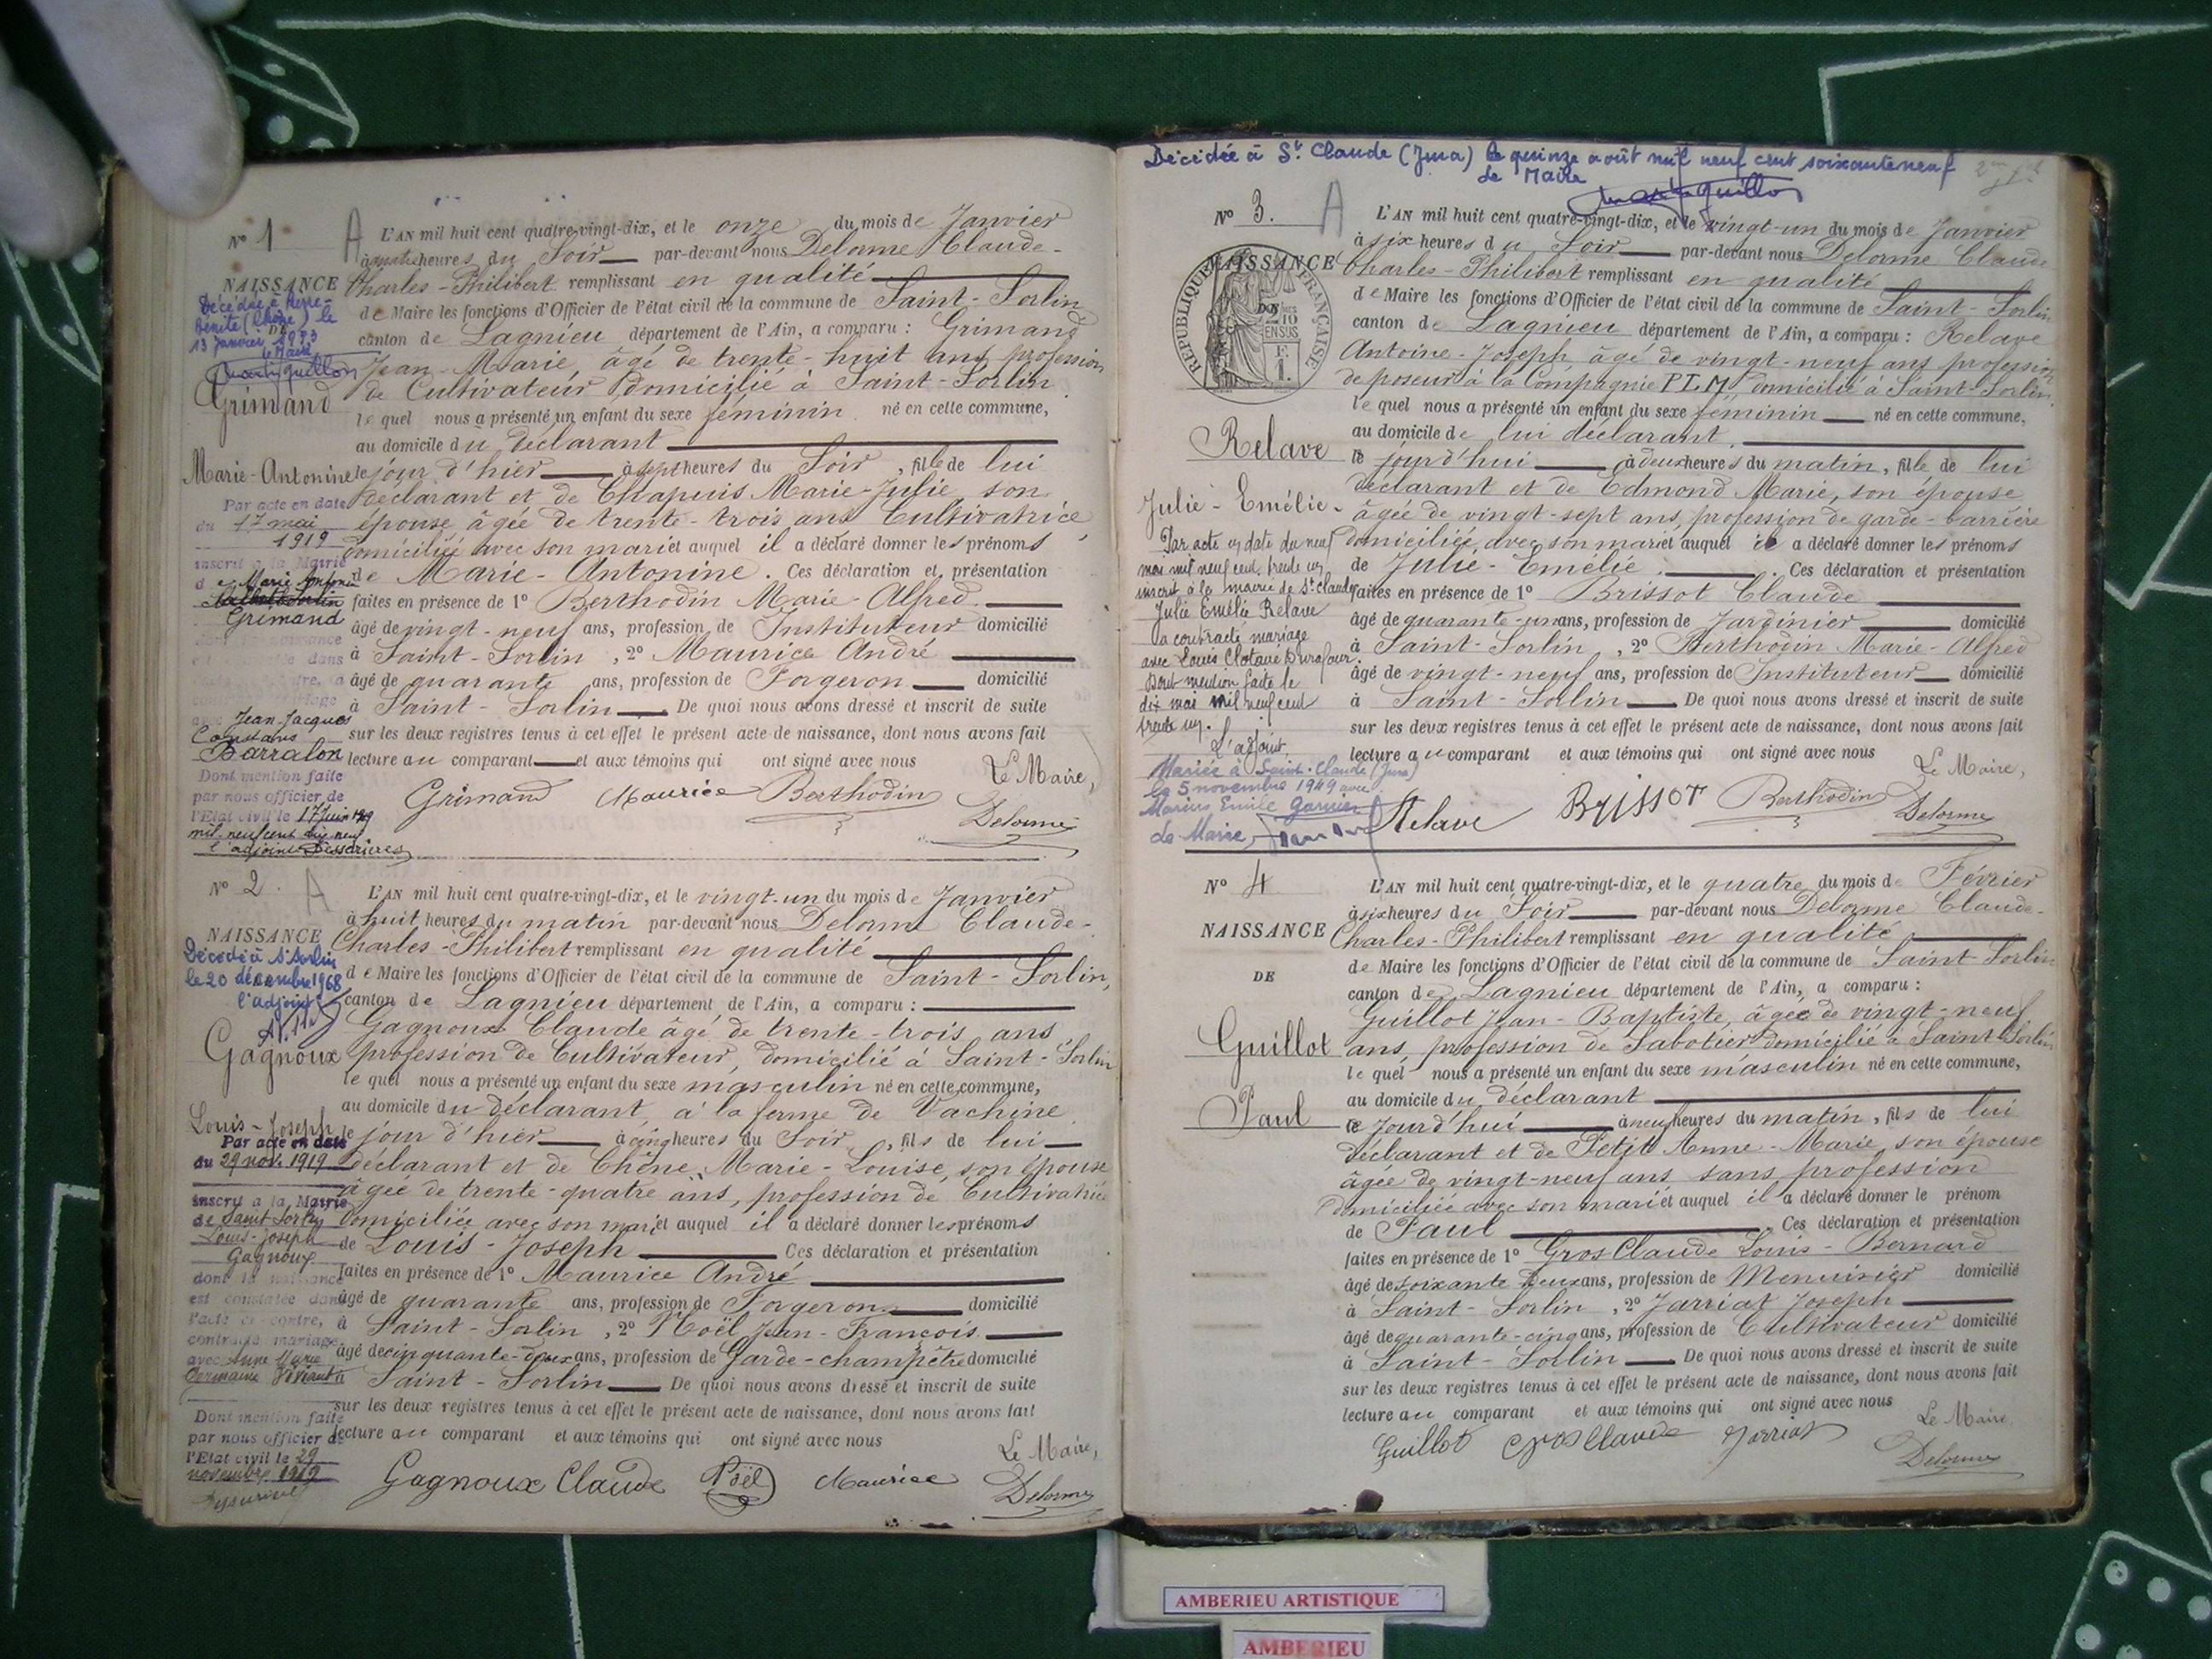 N° 1
A
L'AN mil huit cent quatre-vingt-dix, et le onze du mois de Janvier
à quatre heures du Soir par-devant nous Delorme Claude-
NAISSANCE
Charles-Philibert remplissant en qualité
de Maire les fonctions d'Officier de l'état civil de la commune de Saint-Sorlin
canton de Lagnieu département de l'Ain, a comparu : Grimand
Jean-Marie, âgé de trente-huit ans, profession
de Cultivateur domicilié à Saint-Sorlin
le quel nous a présenté un enfant du sexe féminin né en cette commune,
au domicile du déclarant
le jour d'hier à sept heures du Soir, fille de lui
déclarant et de Chapuis Marie-Julie son
épouse âgée de trente-trois ans Cultivatrice,
domiciliée avec son mari et auquel il a déclaré donner les prénoms
de Marie-Antonine. Ces déclaration et présentation
faites en présence de 1° Berthodin Marie-Alfred
âgé de vingt-neuf ans, profession de Instituteur domicilié
à Saint-Sorlin, 2° Maurice André
âgé de quarante ans, profession de Forgeron domicilié
à Saint-Sorlin. De quoi nous avons dressé et inscrit de suite
sur les deux registres tenus à cet effet le présent acte de naissance, dont nous avons fait
lecture au comparant et aux témoins qui ont signé avec nous
Le Maire,
Grimand Maurice Berthodin
Delorme
Décédée à Pierre-
Bénite (Rhône) le
13 Janvier 1973
le Maire
Grimand
Marie-Antonine
Par acte en date
du 17 mai
1919
inscrit à la Mairie
de
Marie Antonine
Grimand
Jean-Jacques
Constans
Barralon
Dont mention faite
par nous officier de
l'Etat civil le 17 Juin 1919
mil-neuf cent dix-neuf
l'adjoint Dessarieres
N° 2.
A
L'AN mil huit cent quatre-vingt-dix, et le vingt-un du mois de Janvier
à huit heures du matin par-devant nous Delorme Claude-
NAISSANCE
Charles-Philibert remplissant en qualité
de Maire les fonctions d'Officier de l'état civil de la commune de Saint-Sorlin,
canton de Lagnieu département de l'Ain, a comparu :
Gagnoux Claude âgé de trente-trois ans
profession de Cultivateur, domicilié à Saint-Sorlin
le quel nous a présenté un enfant du sexe masculin né en cette commune,
au domicile du déclarant, à la ferme de Vachine
le jour d'hier à cinq heures du Soir, fils de lui
déclarant et de Chêne Marie-Louise, son épouse
âgée de trente-quatre ans, profession de Cultivatrice
domiciliée avec son mari et auquel il a déclaré donner les prénoms
de Louis-Joseph Ces déclaration et présentation
faites en présence de 1° Maurice André
âgé de quarante ans, profession de Forgeron domicilié
à Saint-Sorlin, 2° Noël Jean-François
âgé de cinquante-deux ans, profession de Garde-champêtre domicilié
à Saint-Sorlin De quoi nous avons dressé et inscrit de suite
sur les deux registres tenus à cet effet le présent acte de naissance, dont nous avons fait
lecture au comparant et aux témoins qui ont signé avec nous
Le Maire,
Gagnoux Claude Noël Maurice
Delorme
Décédé à St Sorlin
le 20 décembre 1968
l'adjoint
Gagnoux
Louis-Joseph
Par acte en date
du 29 nov. 1919
inscrit à la Mairie
de Saint Sorlin
Louis-Joseph
Gagnoux
dont la naissance
est constatée dans
l'acte ci-contre, a
contracté mariage
avec Anne Marie
Germaine
Dont mention faite
par nous officier de
l'Etat civil le 29
novembre 1919
Décédée à St Claude (Jura) le quinze août mil neuf cent soixante neuf
le Maire
N° 3.
A
L'AN mil huit cent quatre-vingt-dix, et le vingt-un du mois de Janvier
à six heures du Soir par-devant nous Delorme Claude
NAISSANCE
REPUBLIQUE FRANÇAISE
Charles-Philibert remplissant en qualité
de Maire les fonctions d'Officier de l'état civil de la commune de Saint-Sorlin
canton de Lagnieu département de l'Ain, a comparu : Relave
Antoine-Joseph, âgé de vingt-neuf ans profession
de poseur à la Compagnie P.L.M., domicilié à Saint-Sorlin
le quel nous a présenté un enfant du sexe féminin né en cette commune,
au domicile de lui déclarant
le jourd'hui à deux heures du matin, fille de lui
déclarant et de Edmond Marie, son épouse
âgée de vingt-sept ans, profession de garde-barrière
domiciliée avec son mari et auquel il a déclaré donner les prénoms
de Julie-Emélie. Ces déclaration et présentation
faites en présence de 1° Brissot Claude
âgé de quarante-un ans, profession de Jardinier domicilié
à Saint-Sorlin, 2° Berthodin Marie-Alfred
âgé de vingt-neuf ans, profession de Instituteur domicilié
à Saint-Sorlin De quoi nous avons dressé et inscrit de suite
sur les deux registres tenus à cet effet le présent acte de naissance, dont nous avons fait
lecture au comparant et aux témoins qui ont signé avec nous
Le Maire,
Relave Brissot Berthodin
Delorme
Relave
Julie-Emélie-
Par acte en date du neuf
mai mil neuf cent trente un
inscrit à la mairie de St Claude
Julie Emélie Relave
a contracté mariage
avec Louis Clotaire Durafour.
Dont mention faite le
dix mai mil neuf cent
trente un.
L'adjoint.
Mariée à Saint-Claude (Jura)
le 5 novembre 1949 avec
Marius Emile Garnier
Le Maire,
N° 4
L'AN mil huit cent quatre-vingt-dix, et le quatre du mois de Février
à six heures du Soir par-devant nous Delorme Claude-
NAISSANCE
Charles-Philibert remplissant en qualité
de Maire les fonctions d'Officier de l'état civil de la commune de Saint Sorlin
DE
canton de Lagnieu département de l'Ain, a comparu :
Guillot Jean-Baptiste, âgé de vingt-neuf
Guillot
ans, profession de Sabotier domicilié à Saint-Sorlin
le quel nous a présenté un enfant du sexe masculin né en cette commune,
au domicile du déclarant
Paul
le jourd'hui à neuf heures du matin, fils de lui
déclarant et de Petit Anne-Marie, son épouse
âgée de vingt-neuf ans sans profession
domiciliée avec son mari et auquel il a déclaré donner le prénom
de Paul. Ces déclaration et présentation
faites en présence de 1° Gros Claude Louis-Bernard
âgé de soixante deux ans, profession de Menuisier domicilié
à Saint-Sorlin, 2° Jarriat Joseph
âgé de quarante-cinq ans, profession de Cultivateur domicilié
à Saint-Sorlin De quoi nous avons dressé et inscrit de suite
sur les deux registres tenus à cet effet le présent acte de naissance, dont nous avons fait
lecture au comparant et aux témoins qui ont signé avec nous
Le Maire
Guillot Gros Claude Jarriat
Delorme
AMBERIEU ARTISTIQUE
AMBERIEU